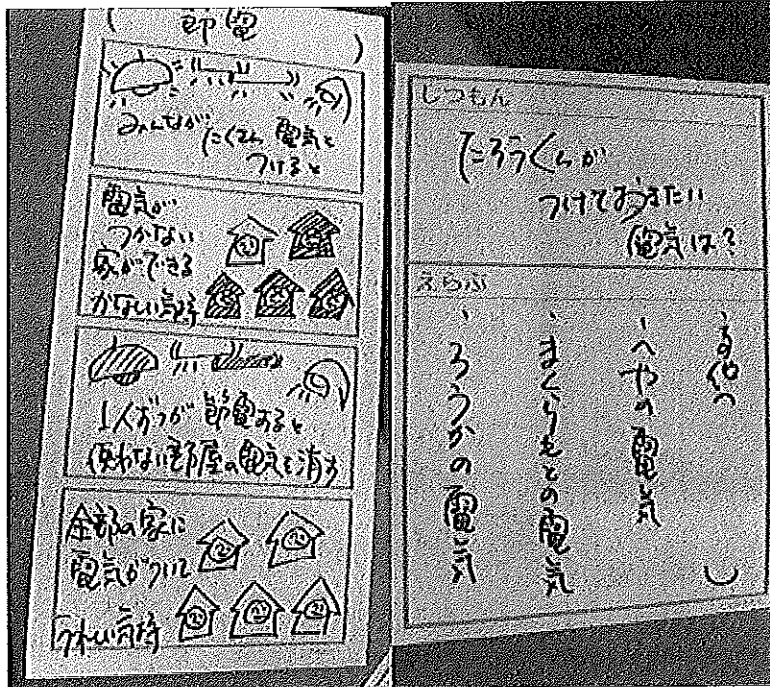 （節電）
みんなが
たくさん電気を
つけると
電気が
つかない
家ができる
かなしい気持
1人ずつが節電すると
使わない部屋の電気を消す
全部の家に
電気がついて
うれしい気持
しつもん
たろうくんが
つけておきたい
電気は？
えらぶ
・その他（　）
・へやの電気
・まくらもとの電気
・ろうかの電気